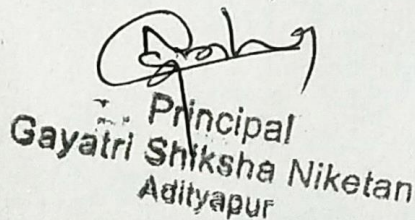 Principal
Gayatri Shiksha Niketan
Adityapur